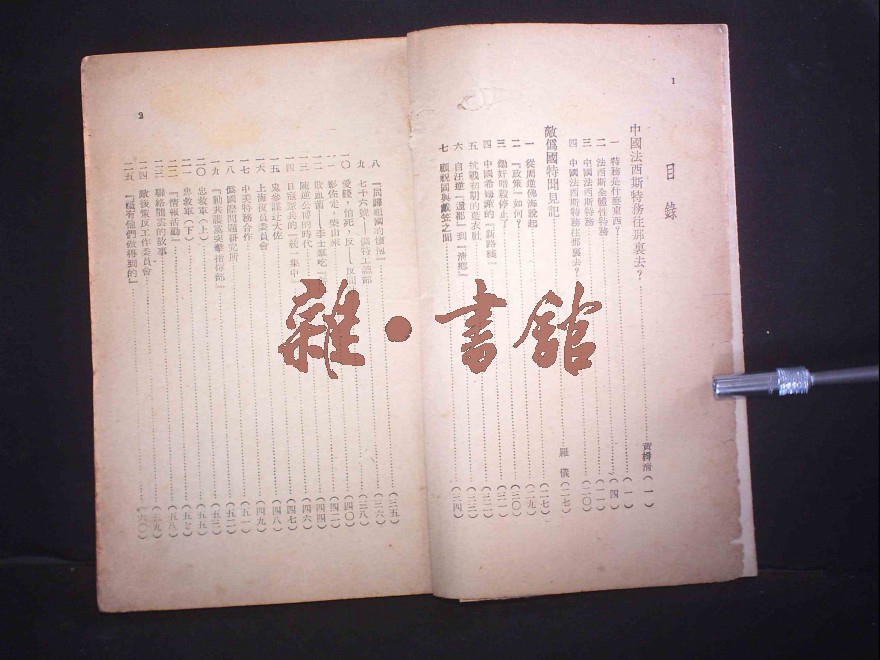 1
目錄
中國法西斯特務往那裏去？ (一)
一 特務是什麽東西？ (一)
二 法西斯全體性特務 (四)
三 中國法西斯特務 (一一)
四 中國法西斯特務往那裏去？ (二〇)
敵僞國特聞見記 羅儀 (二七)
一 從周逆佛海說起 (二七)
二 『政策』如何？ (二九)
三 鋤奸暗殺停止了 (三〇)
四 中國希姆萊的『頭路橋』 (三一)
五 抗戰初期的藍衣社 (三二)
六 自汪逆『還都』到『清鄉』 (三三)
七 顧祝同與戴笠之間 (三四)
2
八 『回歸祖國的懷抱』 (三五)
九 七十六號——僞特工總部 (三六)
一〇 愛錢，怕死，反——反間 (三八)
一一 影佐走，柴山來 (四〇)
一二 飲血當——李士羣吃 (四二)
一三 陳逆公博的時代 (四四)
一四 日寇憲兵的『統一集中』 (四六)
一五 鬼參謀辻大佐 (四七)
一六 上海復員委員會 (四八)
一七 中美特務合作 (四九)
一八 僞國際問題研究所 (五一)
一九 『勦共滅黨突擊指揮部』 (五二)
二〇 忠救軍(上) (五三)
二一 忠救軍(下) (五五)
二二 『情報活動』 (五七)
二三 聯絡龍雲的故事 (五八)
二四 敵後策反工作委員會 (五九)
二五 『祇有他們做得到的』 (六〇)
雜·書館